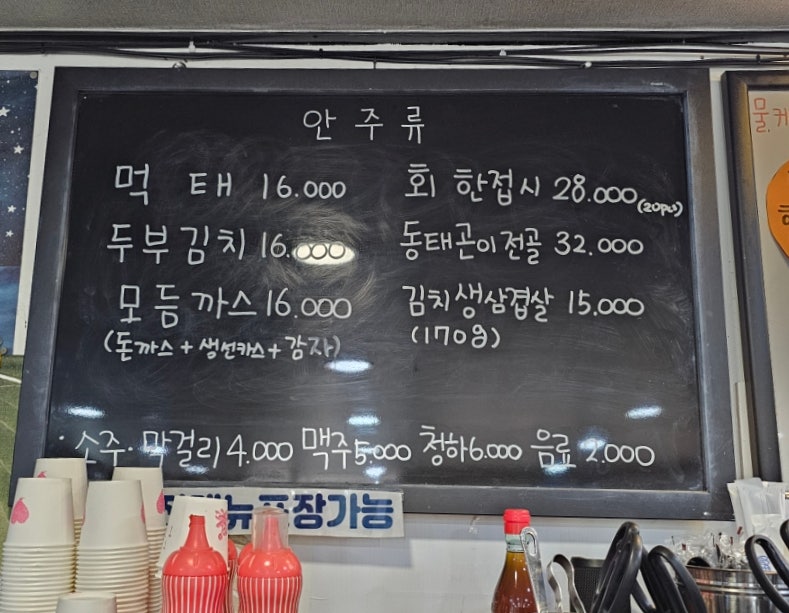 안주류
먹태 16.000
두부김치 16.000
모듬까스 16.000
(돈까스 + 생선카스 + 감자)
회 한접시 28.000 (20pcs)
동태곤이전골 32.000
김치생삼겹살 15.000
(170g)
· 소주 · 막걸리 4.000 맥주 5.000 청하 6.000 음료 2.000
포장가능